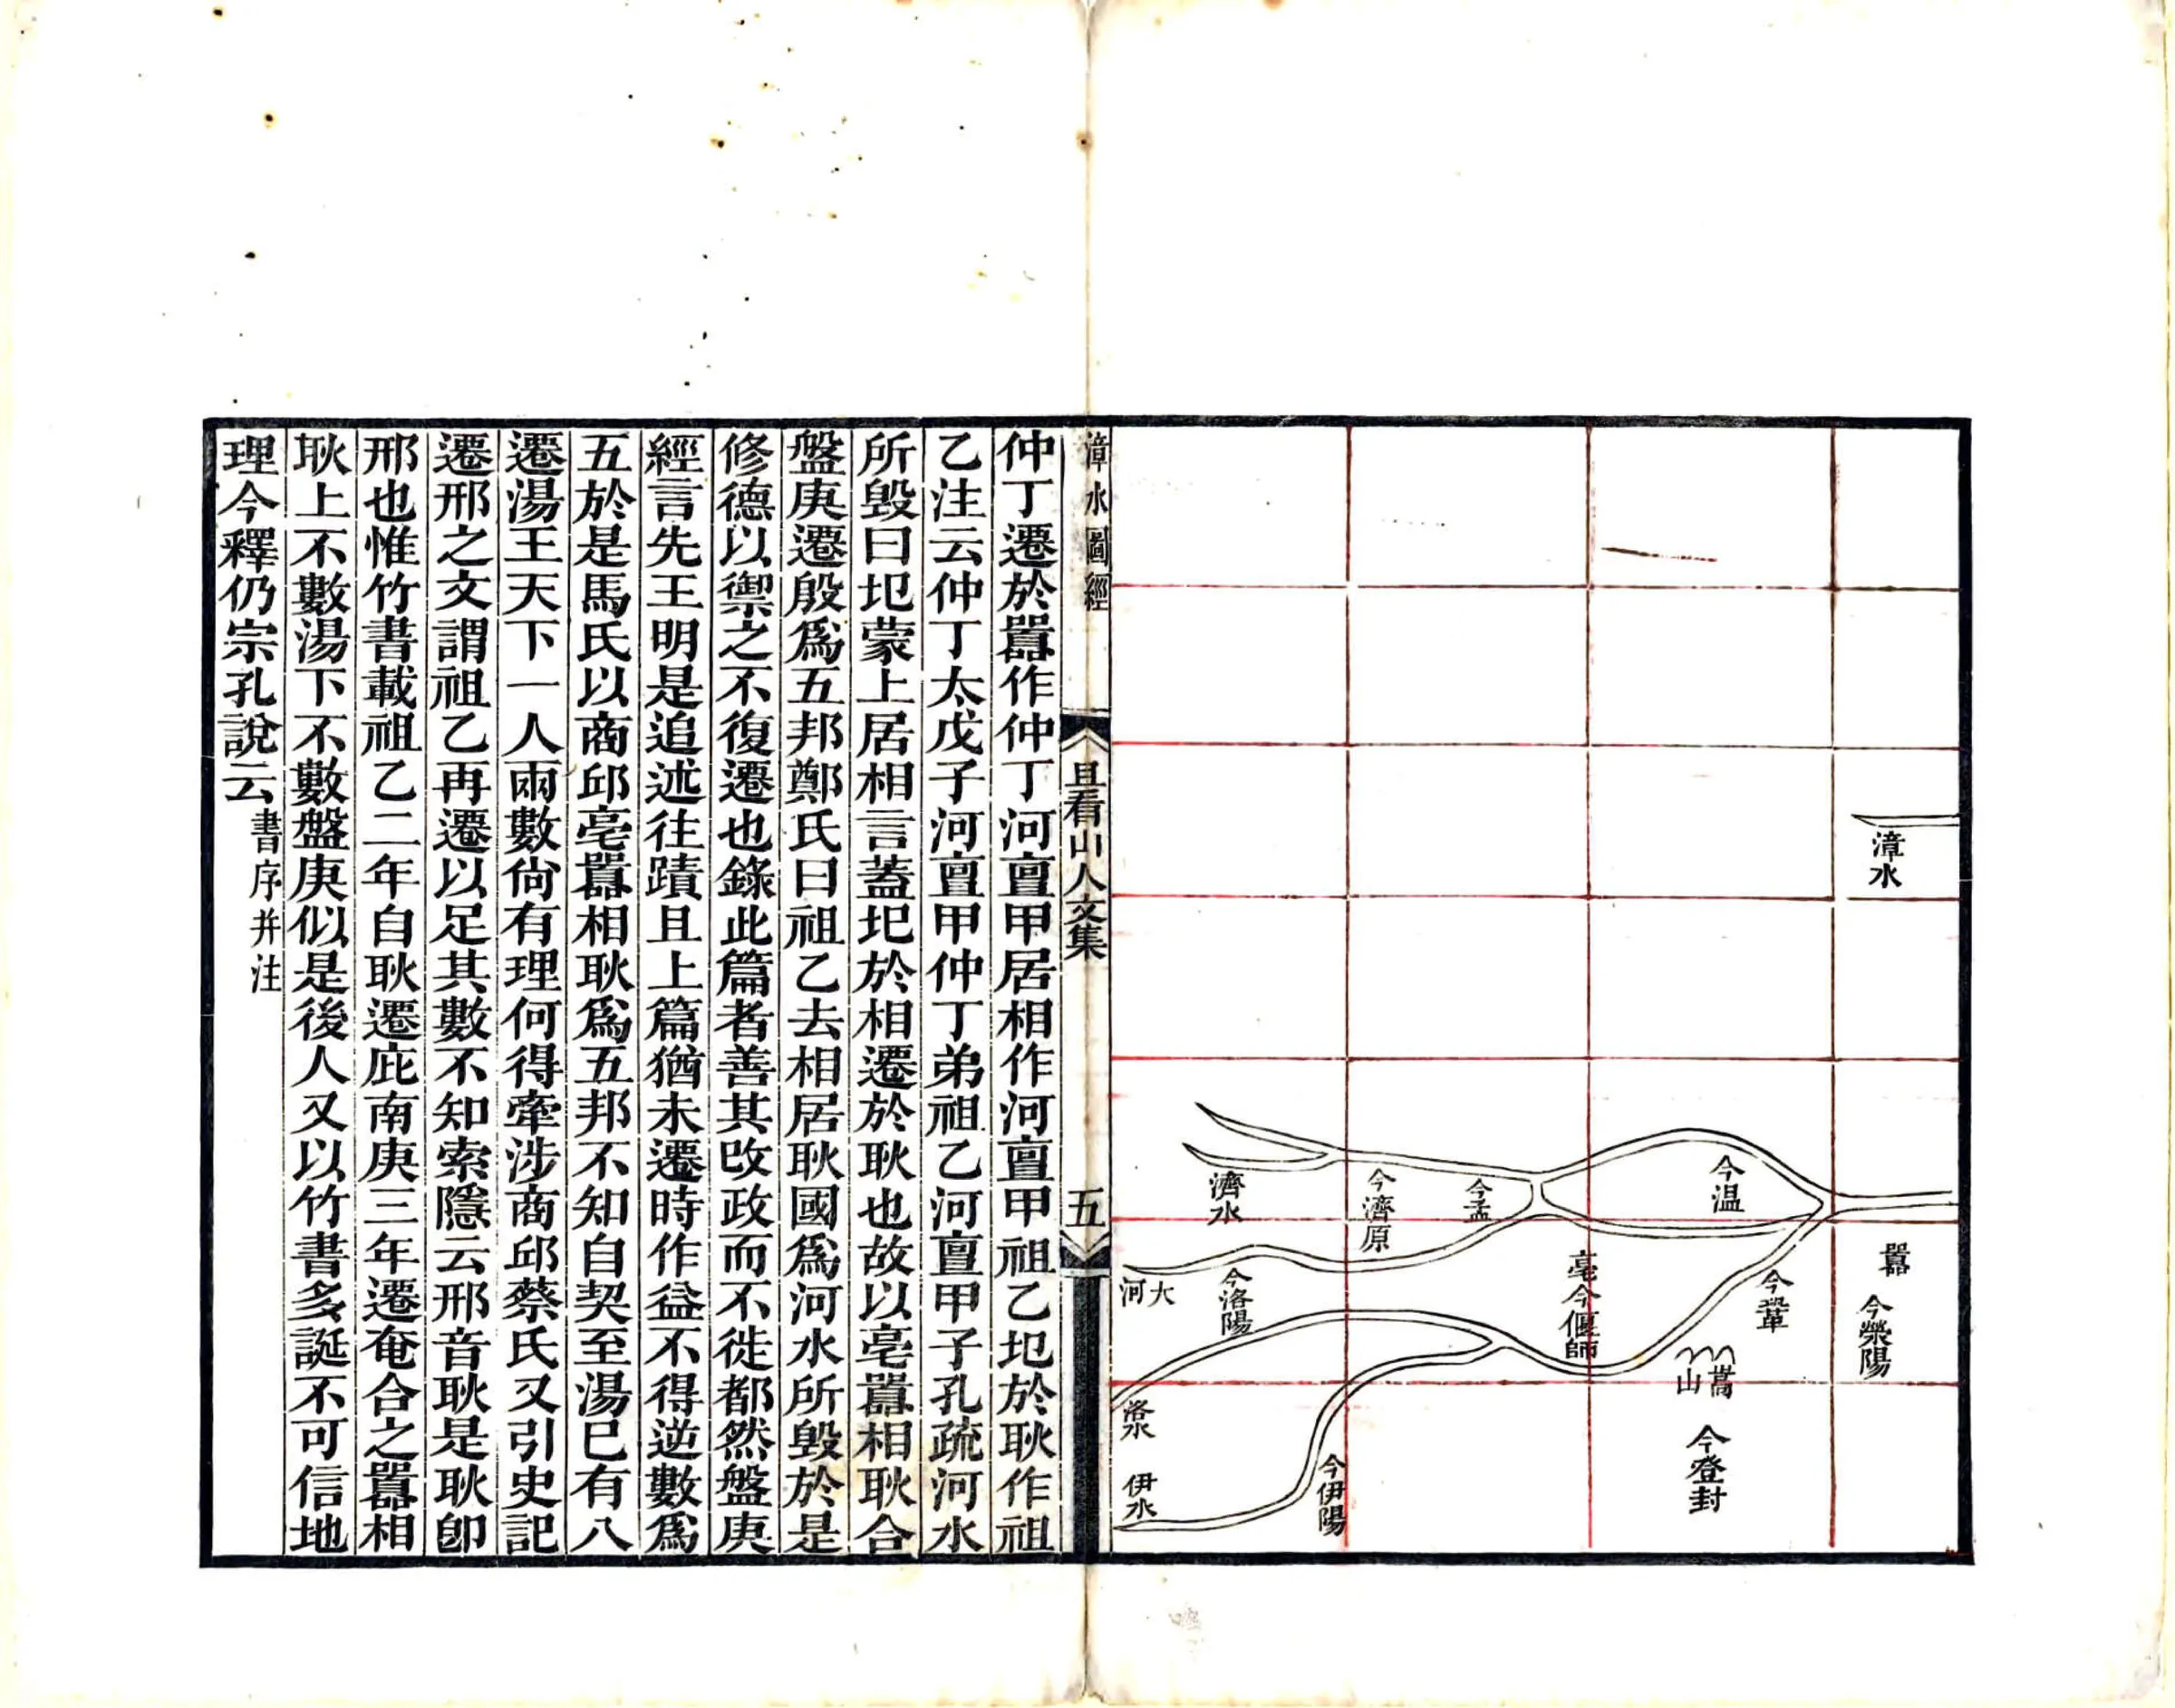 漳水
囂 今滎陽
今溫
今鞏
嵩山
今登封
亳今偃師
今孟
今濟原
濟水
今洛陽
大河
今伊陽
洛水
伊水
漳水圖經
且看山人文集
五
仲丁遷於囂作仲丁河亶甲居相作河亶甲祖乙圯於耿作祖
乙注云仲丁太戊子河亶甲仲丁弟祖乙河亶甲子孔疏河水
所毀曰圯蒙上居相言蓋圯於相遷於耿也故以亳囂相耿合
盤庚遷殷爲五邦鄭氏曰祖乙去相居耿國爲河水所毀於是
修德以禦之不復遷也錄此篇者善其改政而不徙都然盤庚
經言先王明是追述往蹟且上篇猶未遷時作益不得逆數爲
五於是馬氏以商邱亳囂相耿爲五邦不知自契至湯已有八
遷湯王天下一人兩數尙有理何得牽涉商邱蔡氏又引史記
遷邢之文謂祖乙再遷以足其數不知索隱云邢音耿是耿卽
邢也惟竹書載祖乙二年自耿遷庇南庚三年遷奄合之囂相
耿上不數湯下不數盤庚似是後人又以竹書多誕不可信地
理今釋仍宗孔說云書序并注